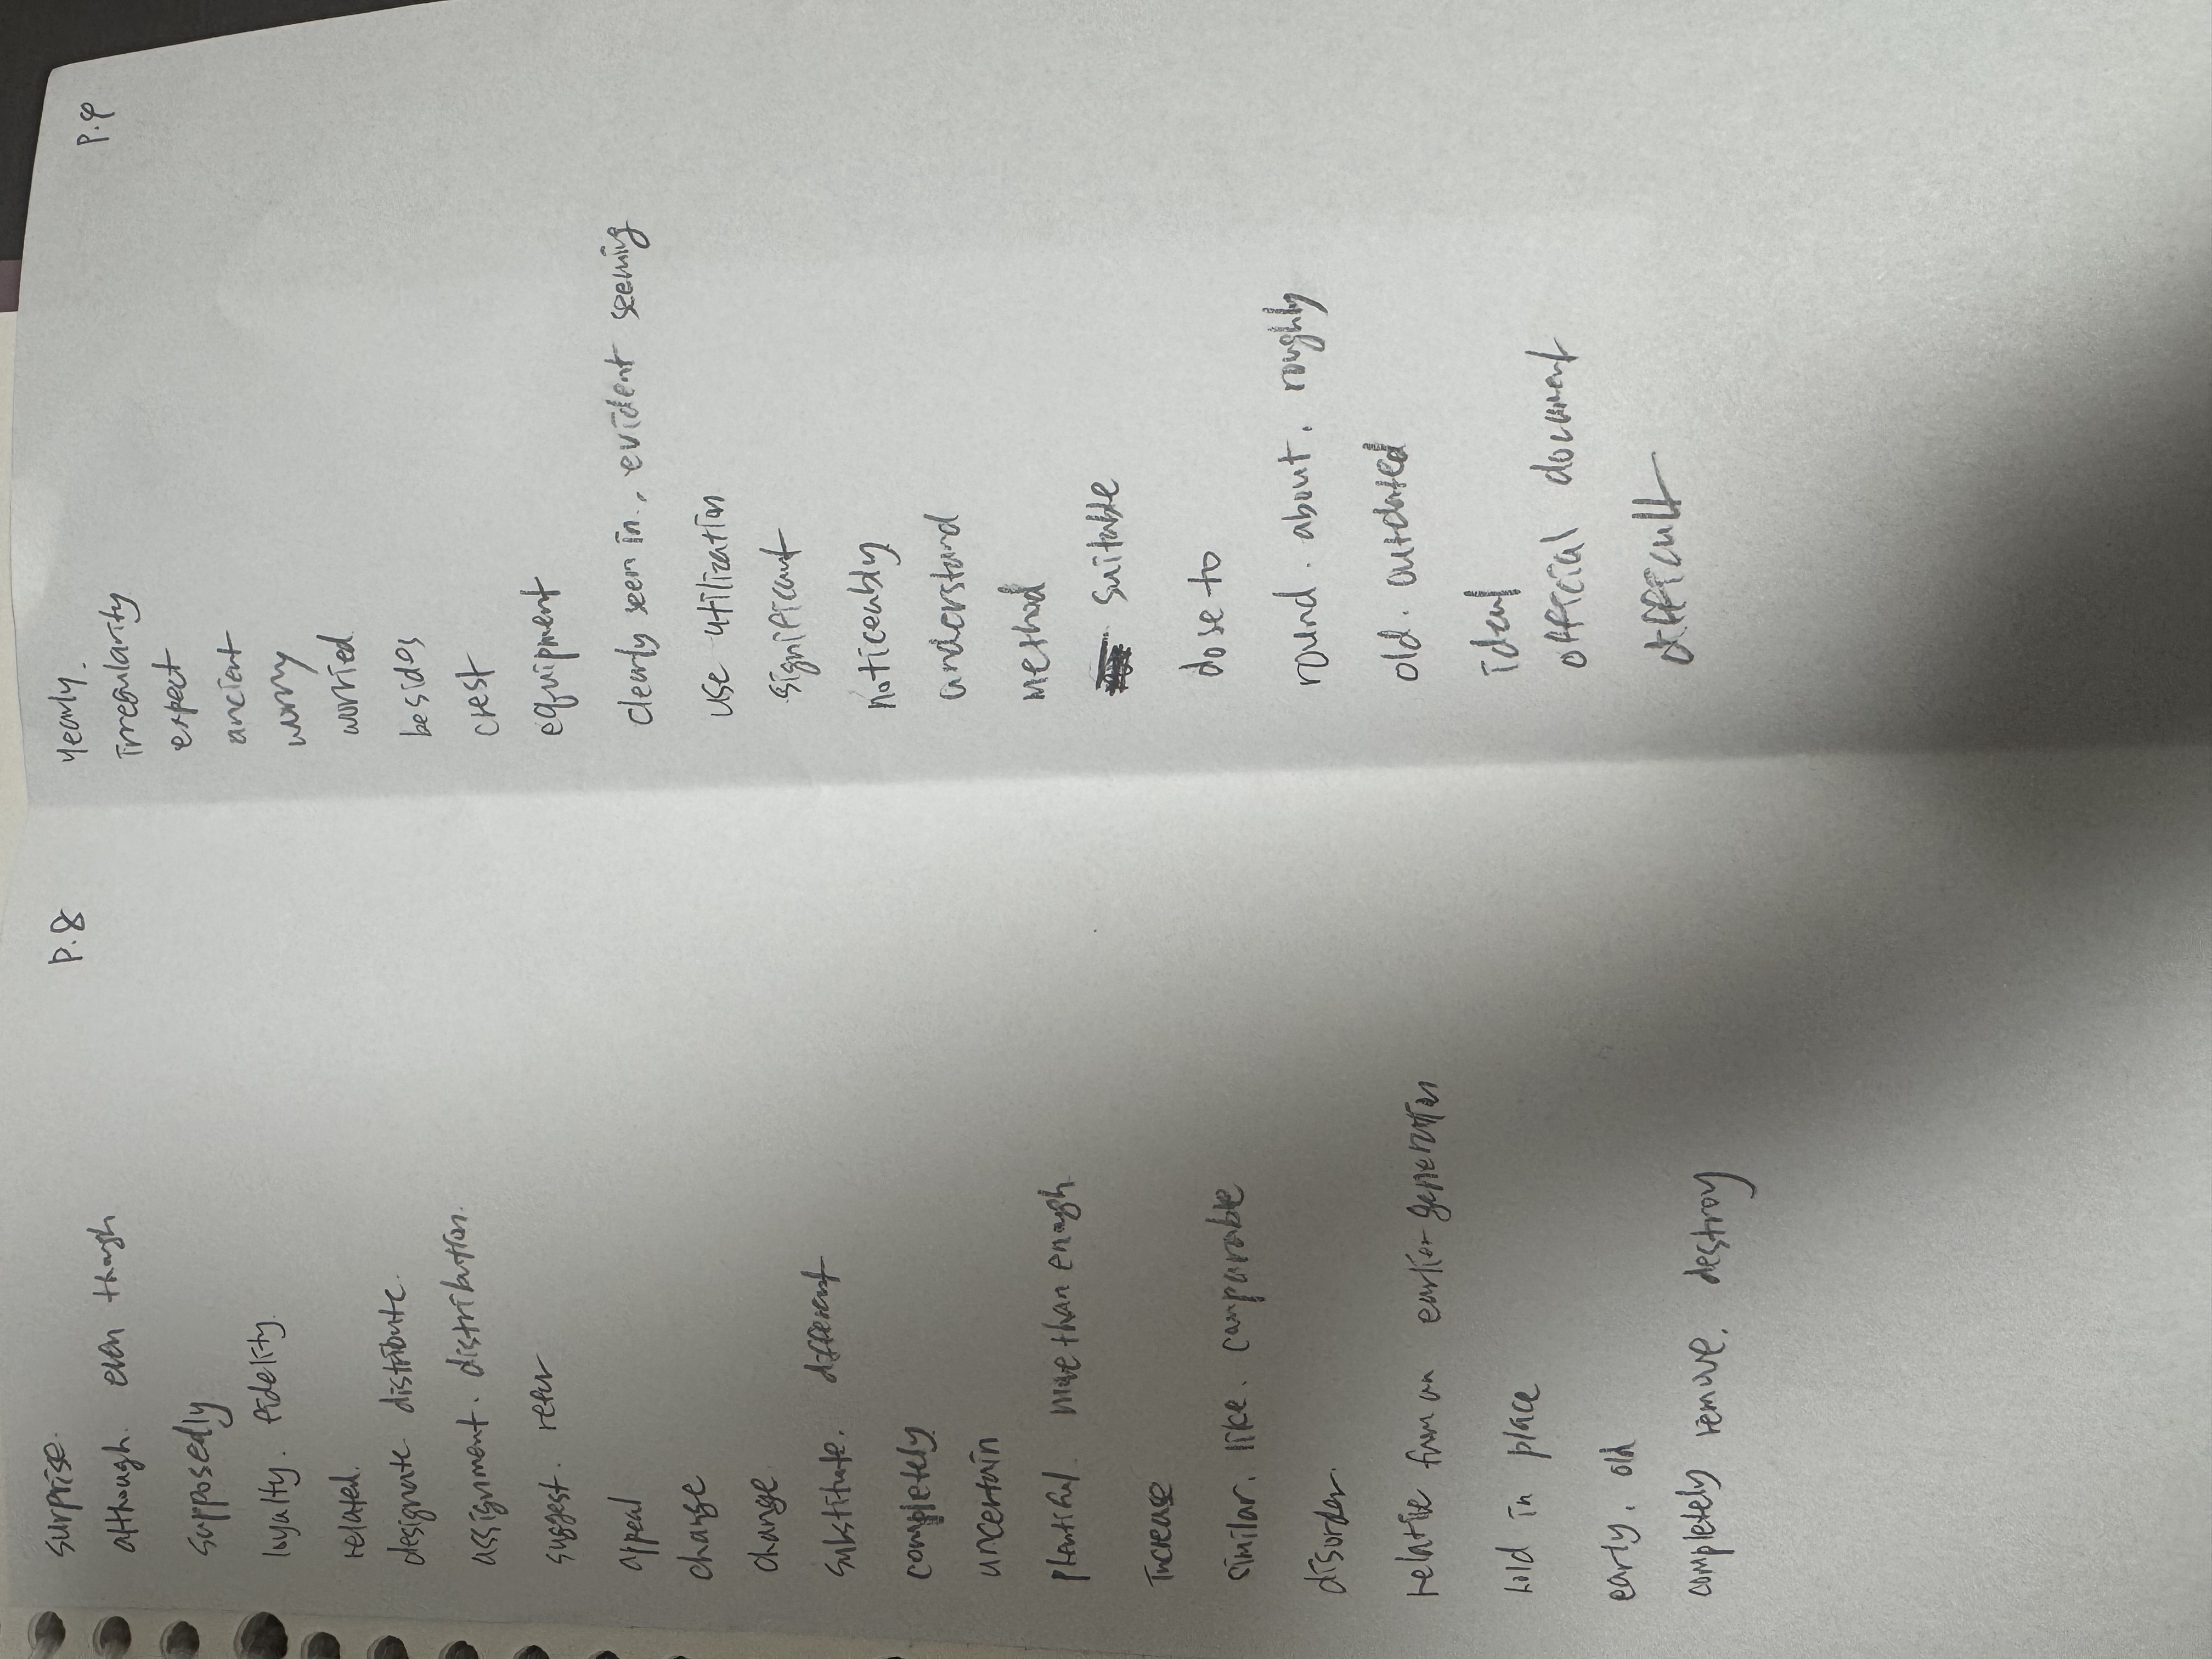 P.8
surprise.
although. even though
supposedly
loyalty. fidelity.
related.
designate distribute.
assignment. distribution.
suggest. refer
appeal
change
change.
substitute. different
completely
uncertain
plentiful. more than enough.
Increase
similar. like. comparable
disorder.
relative from an earlier generation
hold in place
early. old
completely remove. destroy
P.9
yearly.
irregularity
expect
ancient
worry
worried
besides
crest
equipment
clearly seen in. evident seeming
use utilization
significant
noticeably
understand
method
suitable
close to
round. about. roughly
old. outdated
ideal
official document
difficult